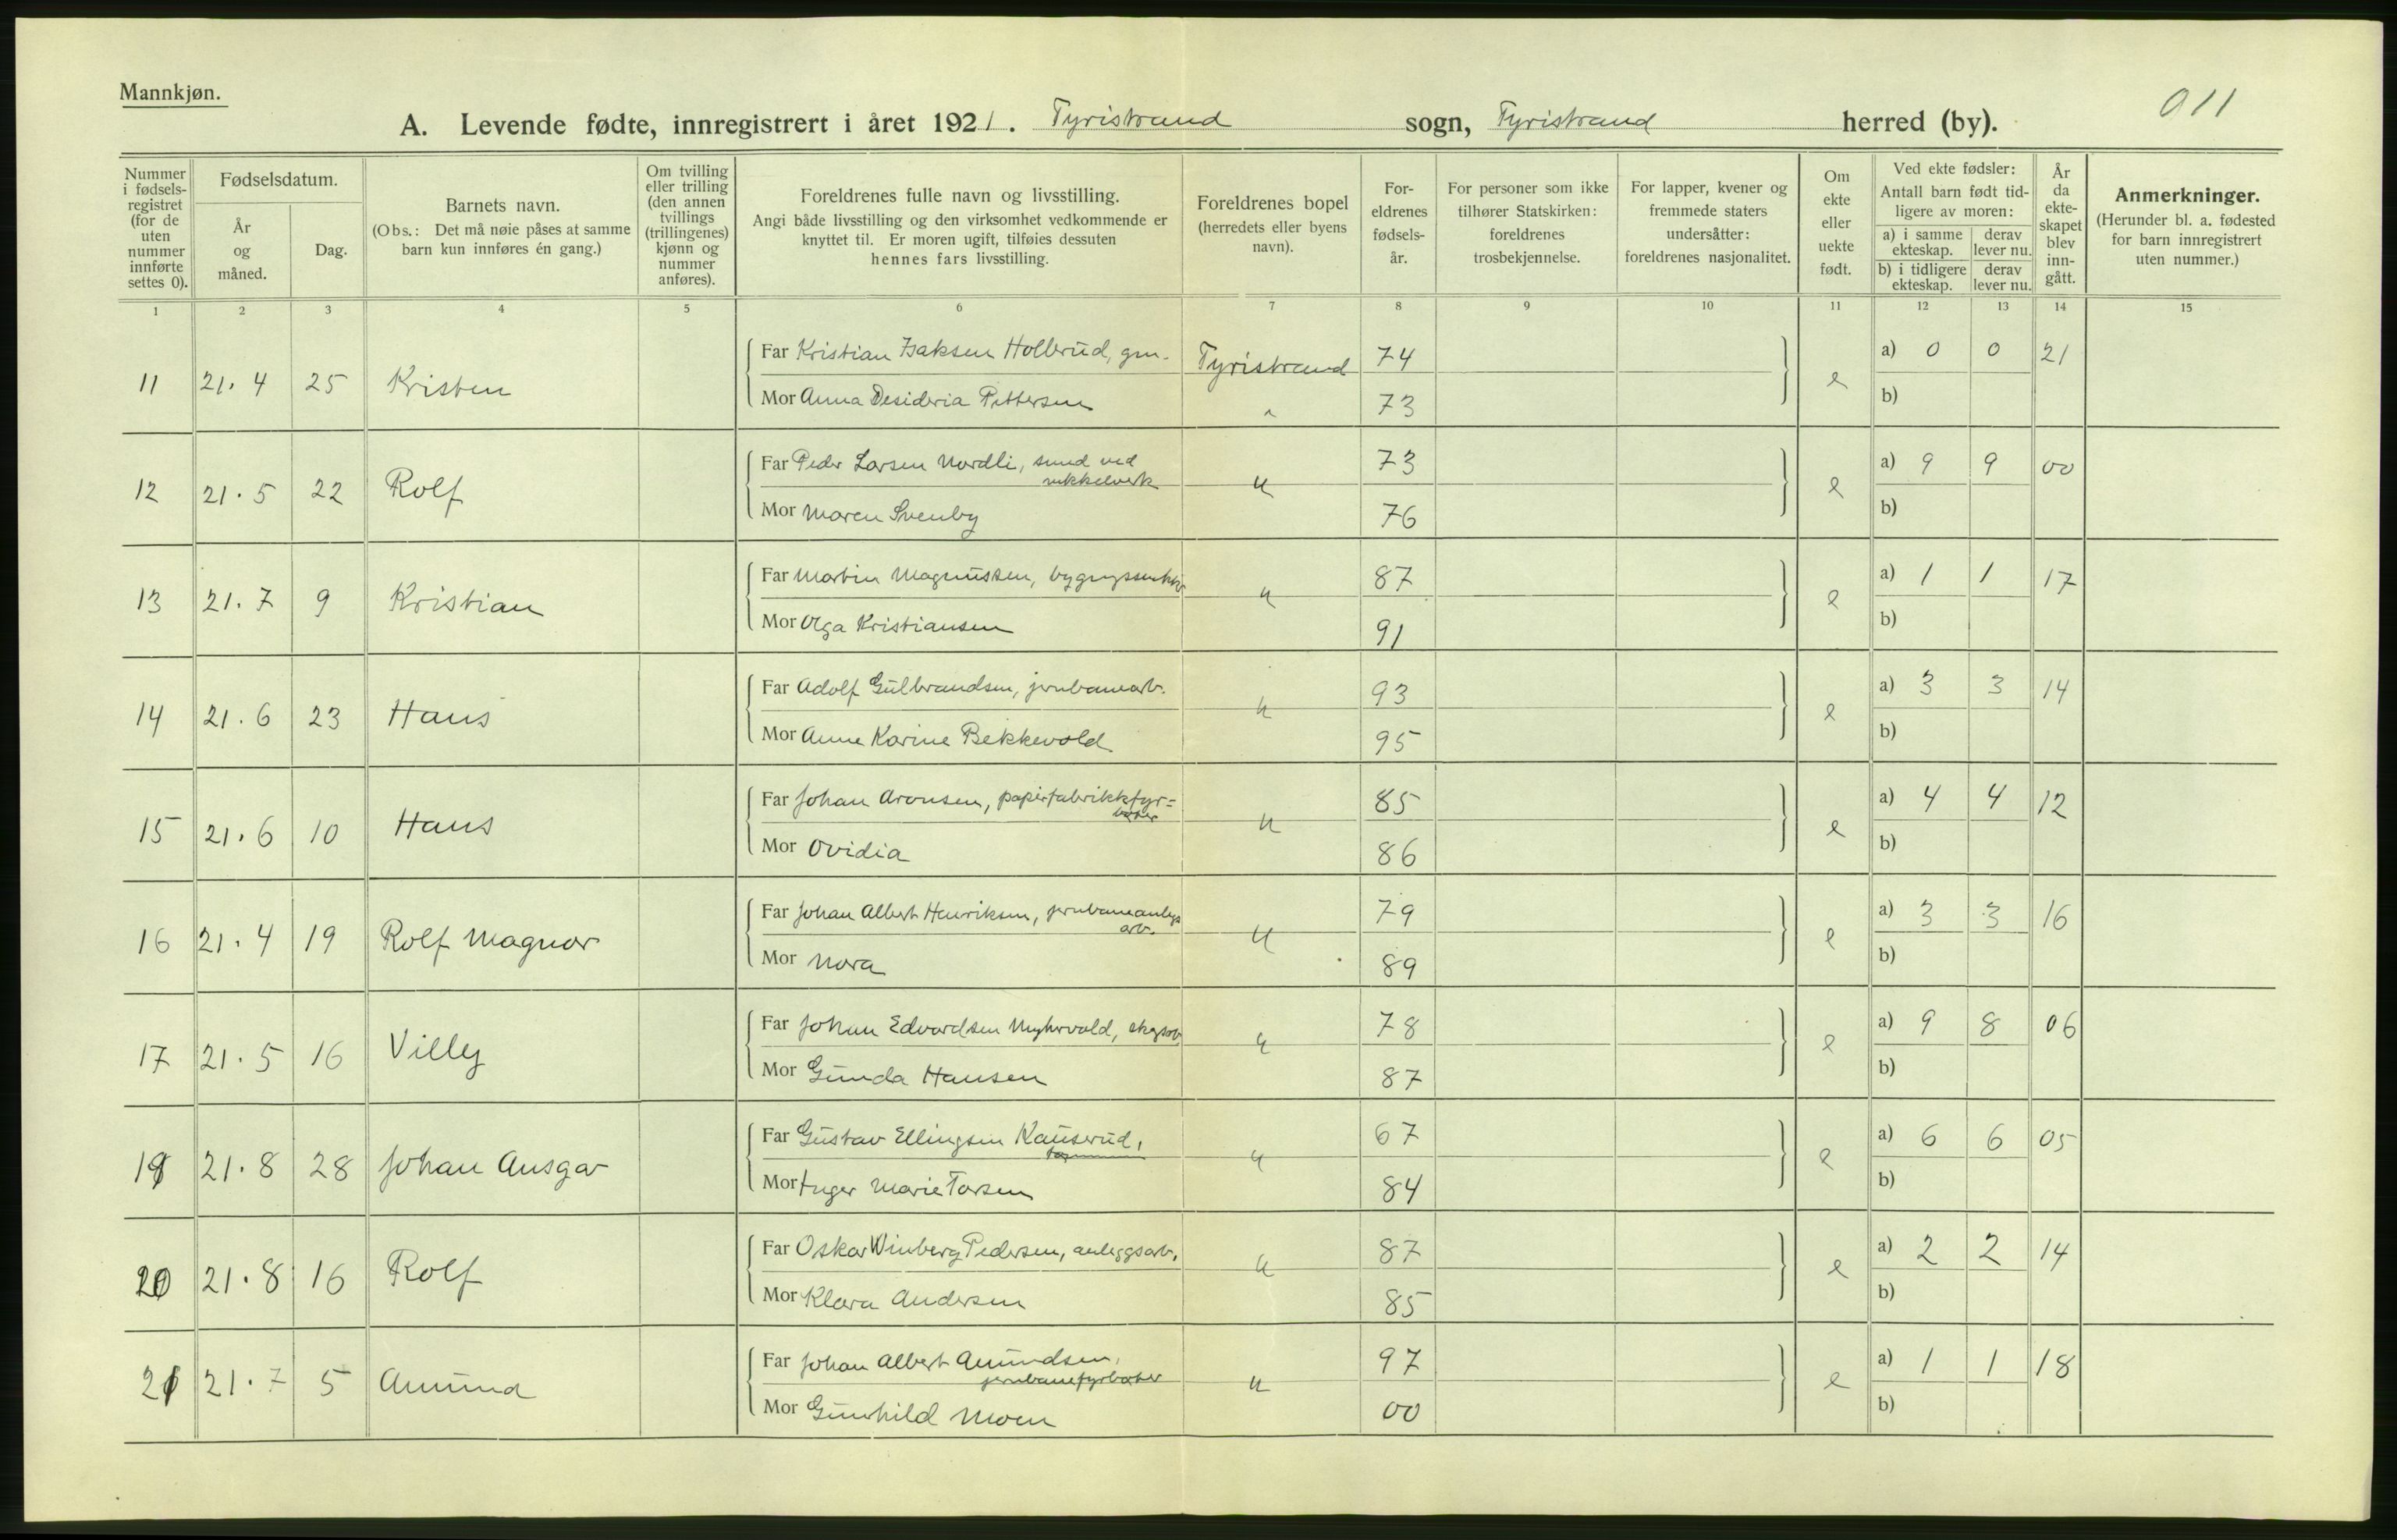 Mannkjøn.
A. Levende fødte, innregistrert i året 1921. Tyristrand sogn, Tyristrand herred (by).
011
Nummer i fødsels-registret (for de uten nummer innførte settes 0).
Fødselsdatum.
År og måned.
Dag.
Barnets navn.
(Obs.: Det må nøie påses at samme barn kun innføres én gang.)
Om tvilling eller trilling (den annen tvillings (trillingenes) kjønn og nummer anføres).
Foreldrenes fulle navn og livsstilling.
Angi både livsstilling og den virksomhet vedkommende er knyttet til. Er moren ugift, tilføies dessuten hennes fars livsstilling.
Foreldrenes bopel (herredets eller byens navn).
For-eldrenes fødsels-år.
For personer som ikke tilhører Statskirken: foreldrenes trosbekjennelse.
For lapper, kvener og fremmede staters undersåtter: foreldrenes nasjonalitet.
Om ekte eller uekte født.
Ved ekte fødsler:
Antall barn født tid-ligere av moren:
a) i samme ekteskap.
derav lever nu.
b) i tidligere ekteskap.
derav lever nu.
År da ekte-skapet blev inn-gått.
Anmerkninger.
(Herunder bl. a. fødested for barn innregistrert uten nummer.)
1 2 3 4 5 6 7 8 9 10 11 12 13 14 15
11 21.4 25 Kristen Far Kristian Isaksen Hollerud, grn. Tyristrand 74 e a) 0 0 21
Mor Anna Desideria Pettersen " 73 b)
12 21.5 22 Rolf Far Peder Larsen Nordli, smed ved nikkelverk " 73 e a) 9 9 00
Mor Maren Svenby 76 b)
13 21.7 9 Kristian Far Martin Magnussen, " 87 e a) 1 1 17
Mor Olga Kristiansen 91 b)
14 21.6 23 Hans Far Adolf Gulbrandsen, jernbanearb. " 93 e a) 3 3 14
Mor Anne Karine Bekkevold 95 b)
15 21.6 10 Hans Far Johan Aronsen, papirfabrikkfyr=
bøter " 85 e a) 4 4 12
Mor Ovidia 86 b)
16 21.4 19 Rolf Magnor Far Johan Albert Henriksen, jernbaneanlegs
arb. " 79 e a) 3 3 16
Mor Nora 89 b)
17 21.5 16 Villy Far Johan Edvardsen Myhrvold, skogsarb " 78 e a) 9 8 06
Mor Gunda Hansen 87 b)
19 21.8 28 Johan Ansgar Far Gustav Ellingsen Kauserud, " 67 e a) 6 6 05
Mor Inger Marie Torsen 84 b)
20 21.8 16 Rolf Far Oskar Winberg Pedersen, anleggsarb. " 87 e a) 2 2 14
Mor Klara Andersen 85 b)
21 21.7 5 Amund Far Johan Albert Amundsen,
jernbanefyrbøter " 97 e a) 1 1 18
Mor Gunhild Moen 00 b)